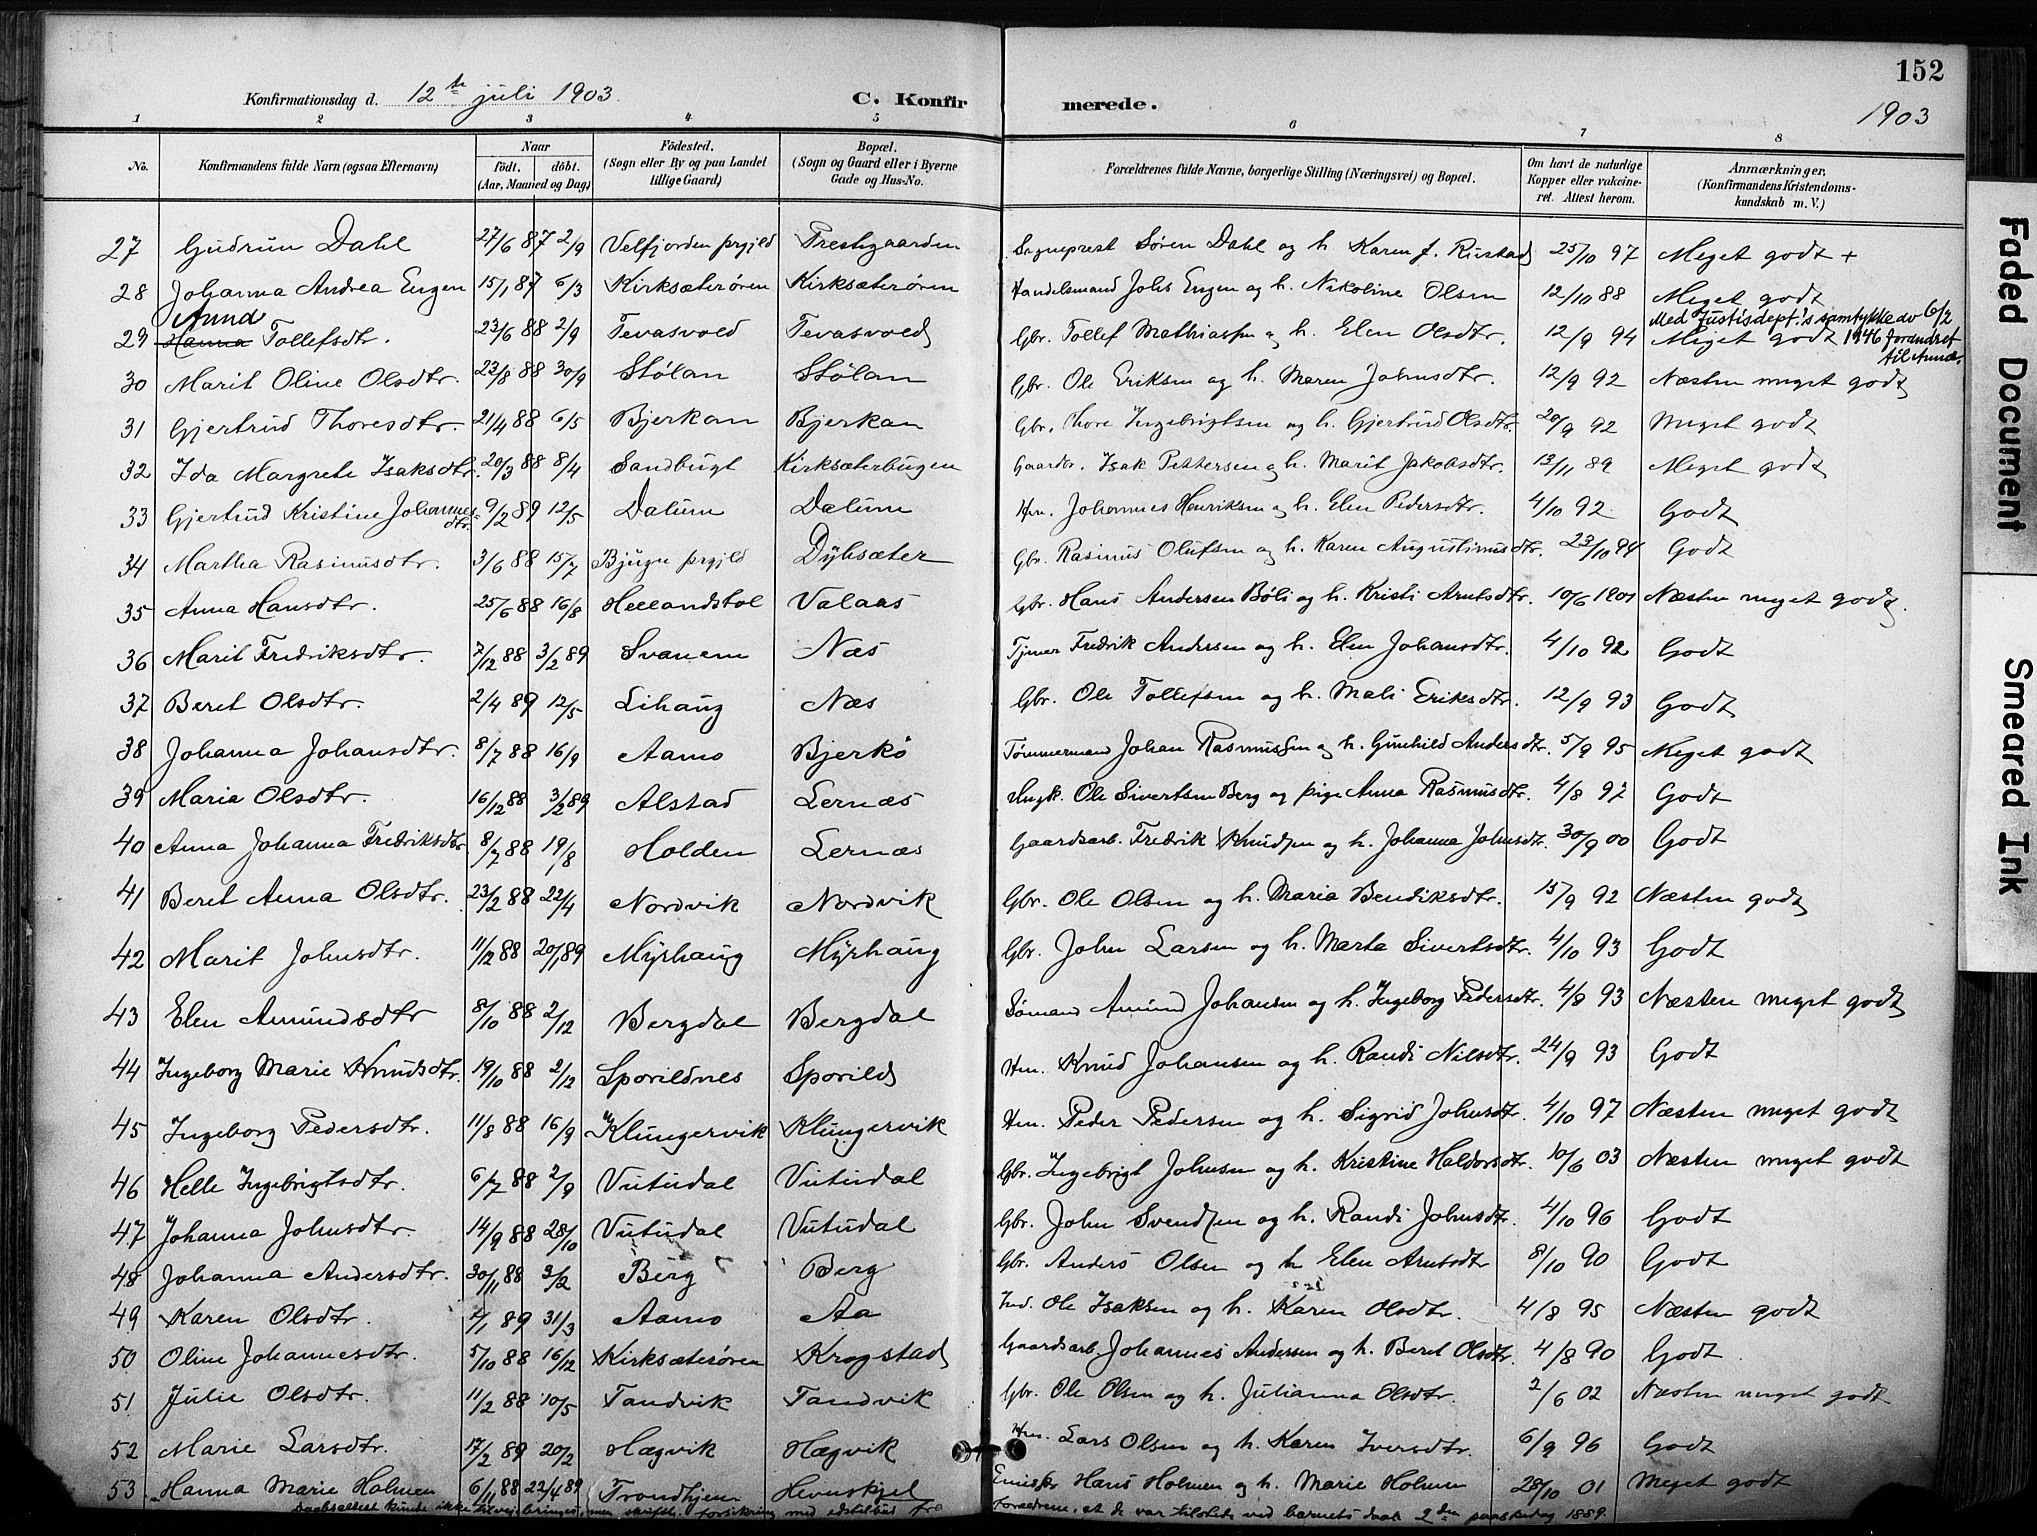 152
Konfirmationsdag d. 12te juli 1903. C. Konfirmerede. 1903
1 2 3 4 5 6 7 8
No. Konfirmandens fulde Navn (ogsaa Efternavn) Naar født. døbt. (Aar, Maaned og Dag) Fødested. (Sogn eller By og paa Landet tillige Gaard) Bopæl. (Sogn og Gaard eller i Byerne Gade og Hus-No. Forældrenes fulde Navne, borgerlige Stilling (Næringsvei) og Bopæl. Om havt de naturlige Kopper eller vakcineret. Attest herom. Anmærkninger, (Konfirmandens Kristendomskundskab m. V.)
27 Gudrun Dahl 27/6 87 2/9 Velfjorden prgjld Prestegaarden Sogneprest Søren Dahl og h. Karen f. Rivstad 25/10 97 Meget godt +
28 Johanna Andrea Engen 15/1 87 6/3 Kirksæterøren Kirksæterøren Handelsmand Johs Engen og h. Nikoline Olsen 12/10 88 Meget godt
Med Justisdept.'s samtykke av 6/2 1946 forandret til Anna
29 Hanna Tollefsdtr. 23/6 88 2/9 Tevasvold Tevasvold Gbr. Tollef Mathiassen og h. Elen Olsdtr. 12/9 94 Meget godt
30 Marit Oline Olsdtr. 23/8 88 30/9 Stølan Stølan Gbr. Ole Eriksen og h. Maren Johnsdtr. 12/9 92 Næsten meget godt
31 Gjertrud Thoresdtr. 21/4 88 6/5 Bjerkan Bjerkan Gbr. Thore Ingebrigtsen og h. Gjertrud Olsdtr. 20/9 92 Meget godt
32 Ida Margrete Isaksdtr. 20/3 88 8/4 Sandbugt Kirksæterbugen Gaardbr. Isak Pettersen og h. Marit Jakobsdtr. 13/11 89 Meget godt
33 Gjertrud Kristine Johannesdtr. 9/2 89 12/5 Dalum Dalum Hm. Johannes Henriksen og h. Elen Pedersdtr. 4/10 92. Godt
34 Martha Rasmusdtr. 3/6 88 15/7 Bjugn prgjld Dybsæter Gbr. Rasmus Olufsen og h. Karen Augustinusdtr. 23/10 94 Godt
35 Anna Hansdtr. 25/6 88 16/8 Hellandstol Valaas Gbr. Hans Andersen Bøli og h. Kristi Arntsdtr. 10/6 1901 Næsten meget godt.
36 Marit Fredriksdtr. 7/12 88 3/2 89 Svanem Næs Tjener Fredrik Andersen og h. Elen Johansdtr. 4/10 92 Godt
37 Beret Olsdtr. 2/4 89 12/5 Lihaug Næs Gbr. Ole Tollefsen og h. Mali Eriksdtr. 12/9 93 Godt
38 Johanna Johansdtr. 8/7 88 16/9 Aamo Bjerkø Tømmermand Johan Rasmussen og h. Gunhild Andersdtr. 5/9 95 Meget godt
39 Maria Olsdtr. 16/12 88 3/2 89 Alstad Lernæs Ungk. Ole Sivertsen Berg og pige Anna Rasmusdtr. 4/8 97 Godt
40 Anna Johanna Fredriksdtr. 8/7 88 19/8 Holden Lernæs Gaardsarb. Fredrik Knudsen og h. Johanna Johnsdtr. 30/9 00 Godt
41 Beret Anna Olsdtr. 23/2 88 22/4 Nordvik Nordvik Gbr. Ole Olsen og h. Maria Bendiksdtr. 15/9 92 Næsten godt
42 Marit Johnsdtr. 11/12 88 20/1 89 Myrhaug Myrhaug Gbr. John Larsen og h. Marta Sivertsdtr. 4/10 93 Godt
43 Elen Amundsdtr 8/10 88 2/12 Bergdal Bergdal Sømand Amund Johansen og h. Ingeborg Pedersdtr. 4/8 93 Næsten meget godt
44 Ingeborg Marie Knudsdtr. 19/10 88 2/12 Sporildnes Sporild Hm. Knud Johansen og h. Randi Nilsdtr. 24/9 93 Godt
45 Ingeborg Pedersdtr. 11/8 88 16/9 Klungervik Klungervik Hm. Peder Pedersen og h. Sigrid Johnsdtr. 4/10 97 Næsten meget godt
46 Helle Ingebrigtsdtr. 6/7 88 2/9 Vutudal Vutudal Gbr. Ingebrigt Johnsen og h. Kristine Haldorsdtr. 10/6 03 Næsten meget godt
47 Johanna Johnsdtr. 14/9 88 28/10 Vutudal Vutudal Gbr. John Svendsen og h. Randi Johnsdtr. 4/10 96 Godt
48 Johanna Andersdtr. 30/1 88 3/2 Berg Berg Gbr. Anders Olsen og h Elen Arntsdtr 8/10 90 Godt
49 Karen Olsdtr. 4/1 89 31/3 Aamo Aa Ind. Ole Isaksen og h. Karen Olsdtr. 4/8 95 Næsten godt
50 Oline Johannesdtr. 5/10 88 16/12 Kirksæterøren Krogstad Gaardsarb. Johannes Andersen og h. Beret Olsdtr. 4/8 90 Godt
51 Julie Olsdtr. 11/2 88 10/5 Tandvik Tandvik Gbr. Ole Olsen og h. Julianna Olsdtr. 2/6 02 Næsten meget godt
52 Marie Larsdtr. 17/2 89 20/2 Hægvik Hægvik Hm. Lars Olsen og h. Karen Iversdtr. 6/9 96 Godt
53 Hanna Marie Holmen 6/11 88 22/4 89 Trondhjem Hevnskjel Hans Holmen og h. Marie Holmen 28/10 01 Meget godt
Daabsattest kunde ikke tilveiebringes, men skriftl. forsikring med edstilbud fra forældrene, at de var tilstede ved barnets daab 2den paaskedag 1889.
Faded Document
Smeared Ink